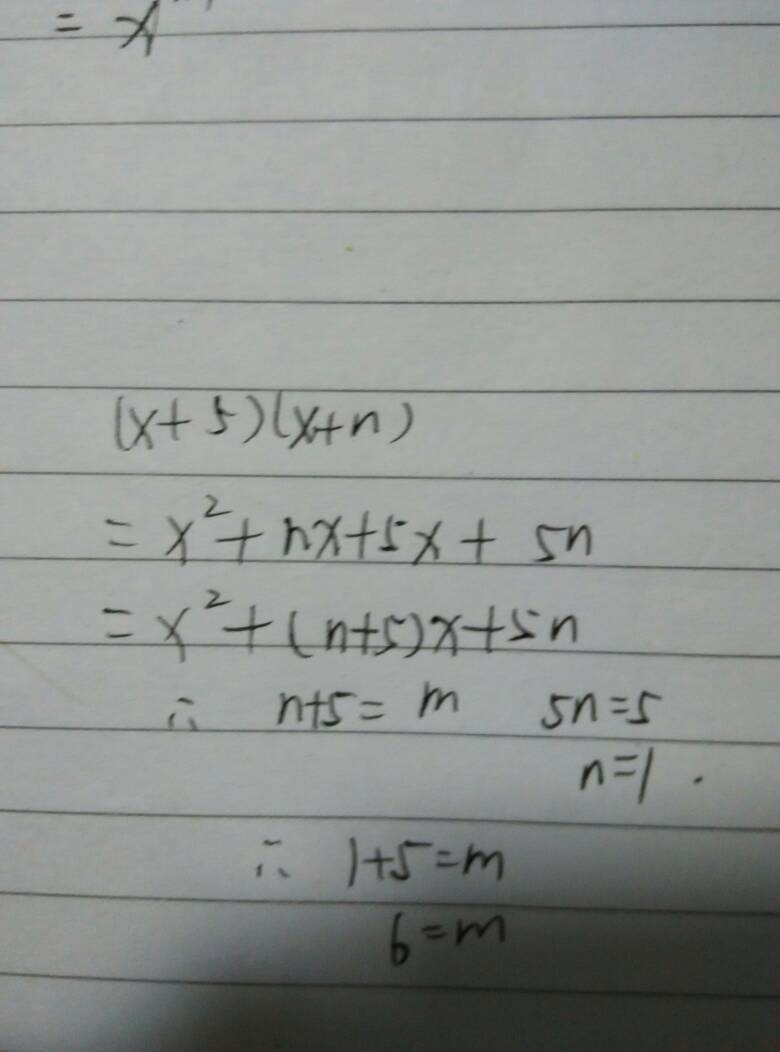 = x
(x+5)(x+n)
= x²+nx+5x+ 5n
= x²+(n+5)x+5n
∴ n+5= m 5n=5
n=1.
∴ 1+5=m
6=m